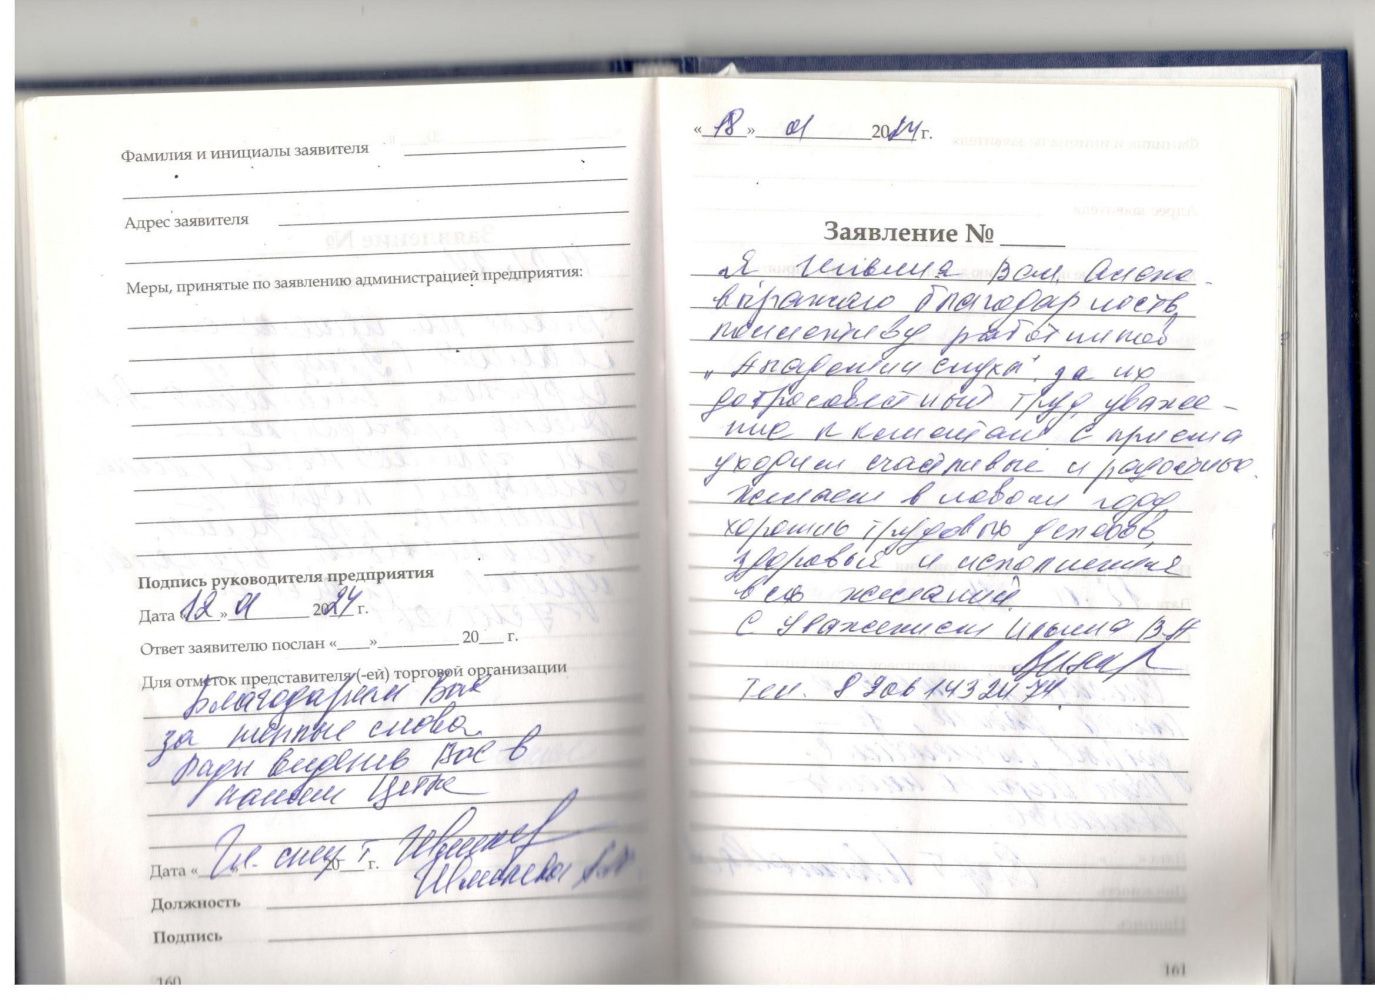 Фамилия и инициалы заявителя
Адрес заявителя
Меры, принятые по заявлению администрацией предприятия:
Подпись руководителя предприятия
Дата «12» 01 2024 г.
Ответ заявителю послан «____»__________ 20___ г.
Для отметок представителя (-ей) торговой организации
Благодарим Вас
за теплые слова.
Рады видеть Вас в
нашем Центре
Гл. спец т.
Дата « 20 г.
Должность
Подпись
160
«18» 01 2024 г.
Заявление № _____
Я Ильина Вал.
выражаю благодарность,
коллективу работников
"Академии слуха" за их
добросовестный труд, уваже-
ние к клиентам с приема
уходим счастливые и радостные.
Желаем в новом году
хороших трудовых успехов,
здоровья и исполнения
всех желаний.
С уважением Ильина В.А
Тел. 8 906 143 24 74.
161